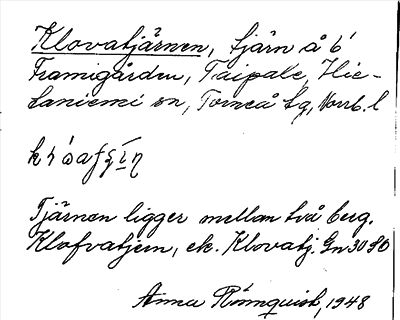 Klovatjärnen, tjärn å b
Framigården, Taipale, Hie-
taniemi sn, Torneå tg, Norrb. l
Tjärnen ligger mellan två berg.
Klofvatjern, ek. Klovatj. Gn 30 SO
Anna Rönnquist, 1948